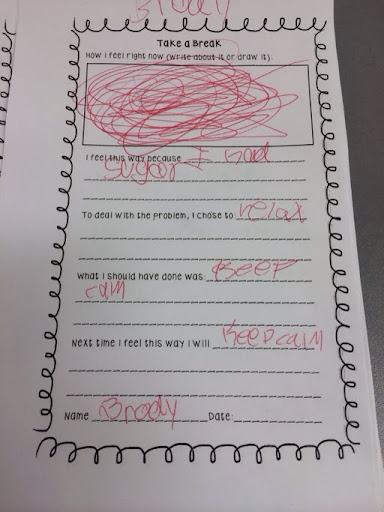 Brody
Take a Break
How I feel right now (write about it or draw it):
I feel this way because I had
sugar
To deal with the problem, I chose to relax
What I should have done was: Keep
calm
Next time I feel this way I will Keep calm
Name Brody Date: